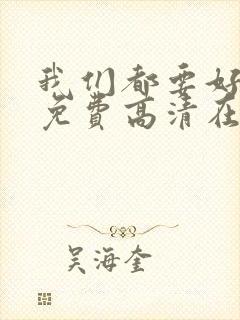 我们都要好
免费高清在
吴海奎